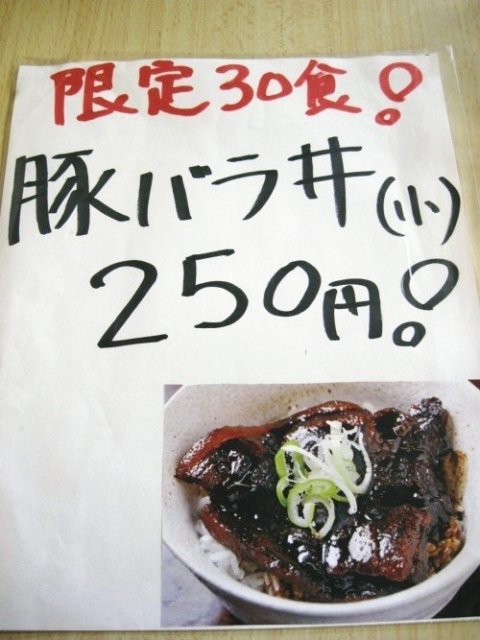 限定30食!
豚バラ丼(小)
250円!